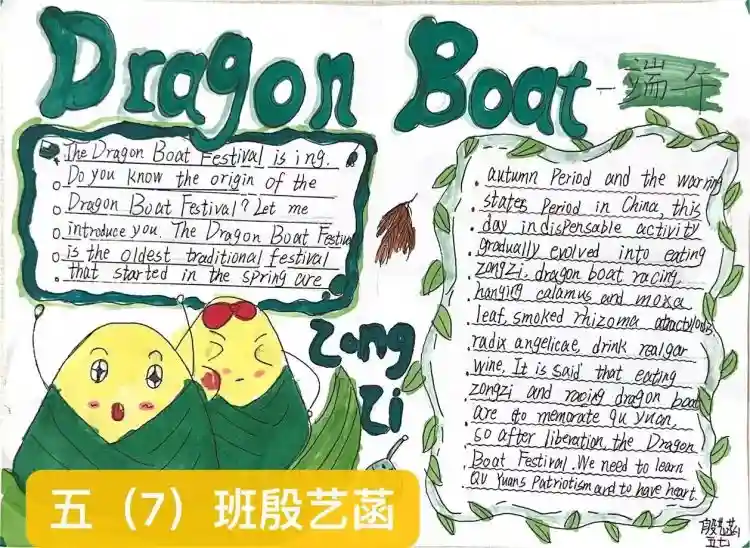 Dragon Boat - 端午
The Dragon Boat Festival is ing.
Do you know the origin of the
Dragon Boat Festival? Let me
introduce you. The Dragon Boat Festival
is the oldest traditional festival
that started in the spring are
autumn Period and the warring
states Period in China, this
day indispensable activity
gradually evolved into eating
zongzi, dragon boat racing,
hanging calamus and moxa
leaf, smoked rhizoma atractylodis
radix angelicae, drink realgar
wine, It is said that eating
zongzi and racing dragon boat
are to memorate qu yuan,
so after liberation, the Dragon
Boat Festival. We need to learn
Qu Yuans Patriotism and to have heart.
Zong
Zi
五（7）班殷艺菡
殷艺菡
五七